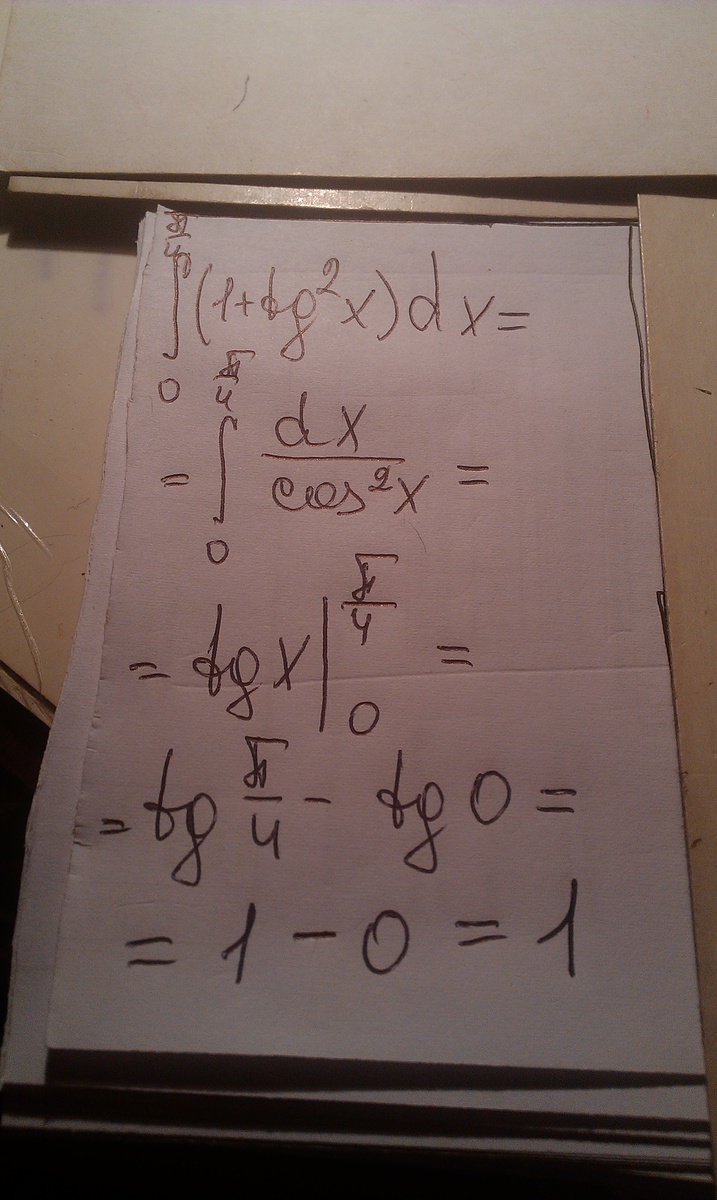 ∫₀^(π/4) (1+tg²x)dx=
= ∫₀^(π/4) dx/cos²x =
= tg x |₀^(π/4) =
= tg π/4 - tg 0 =
= 1 - 0 = 1